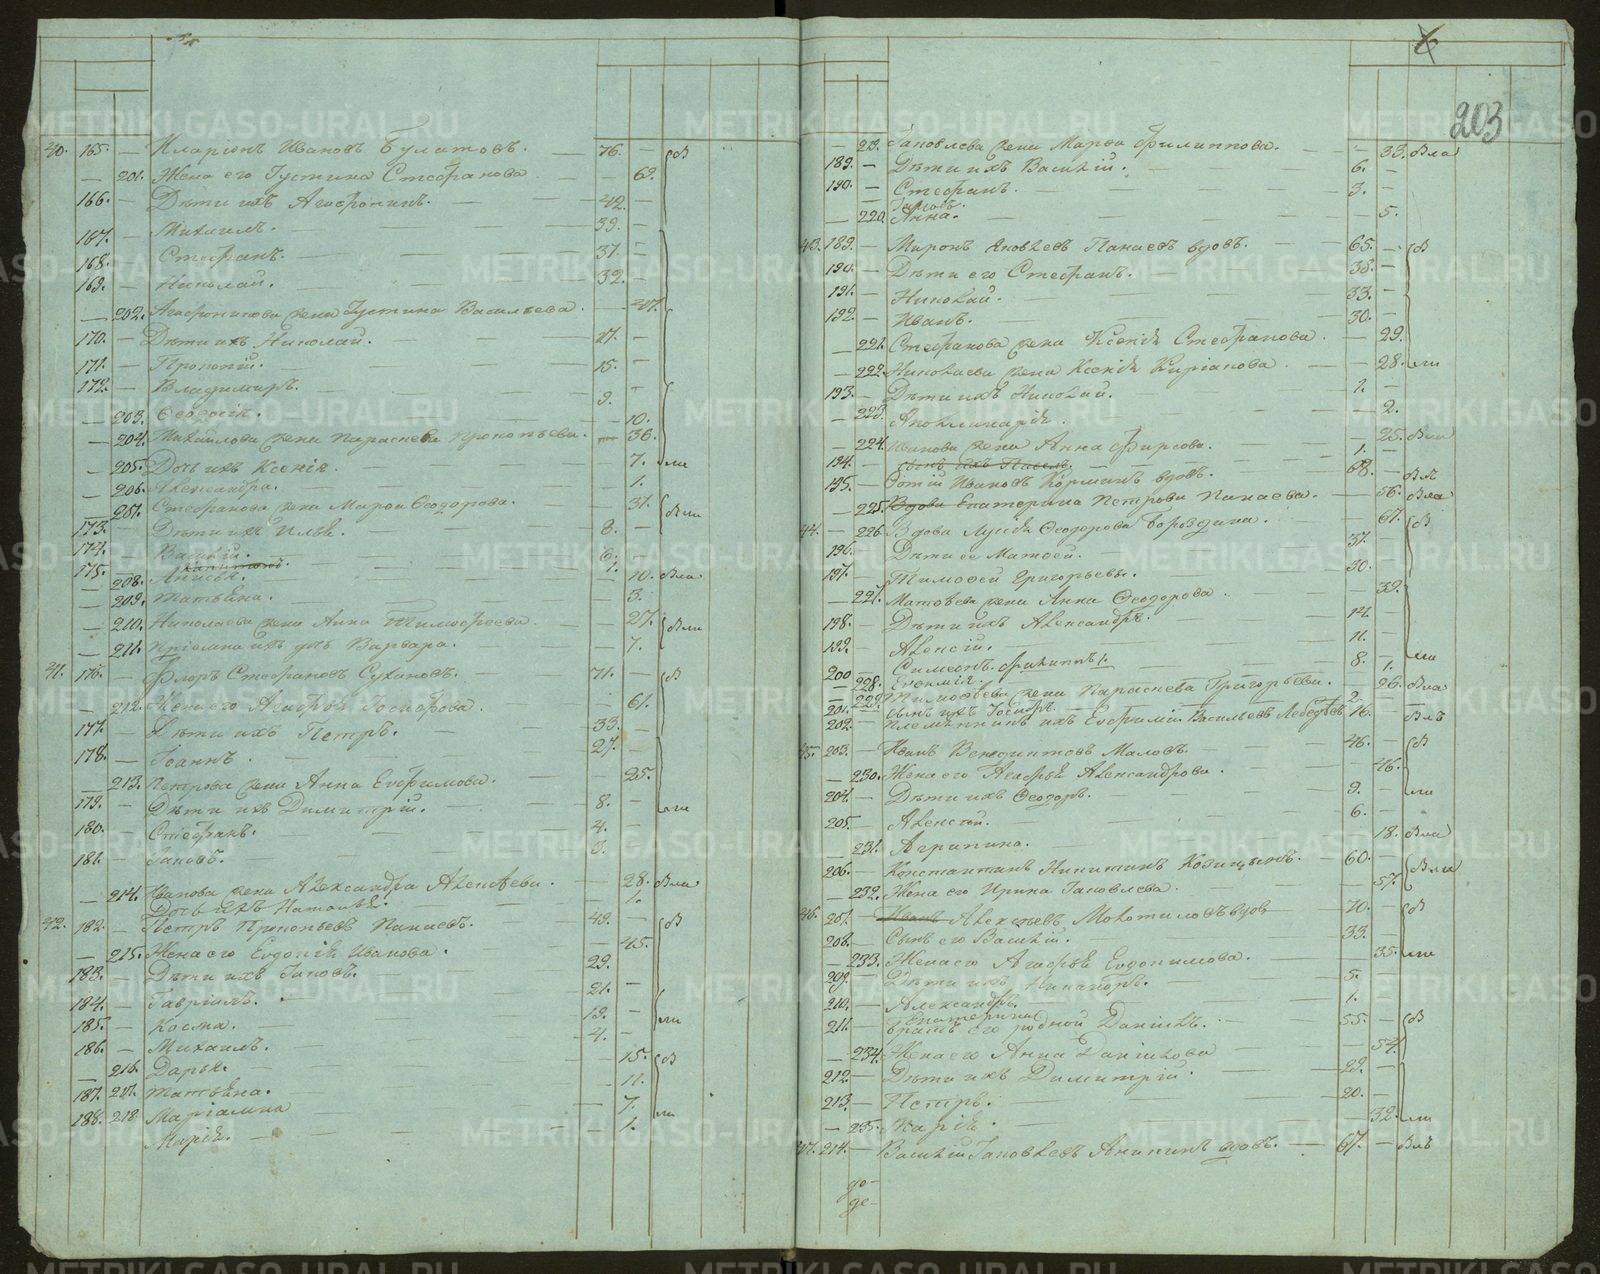 203
40. 165. — Иларіонъ Ивановъ Булатовъ. 76. — В
— 201. Жена его Густина Стефанова — 69.
166. — Дѣти ихъ Агафоникъ. 42. —
167. — Михаилъ. 39. —
168. — Стефанъ. 37. —
169. — Николай. 32. —
— 202. Агафоникова жена Густина Васильева — 41.
170. — Дѣти ихъ Николай. 17. —
171. — Прокопій. 15. —
172. — Владимиръ. 9. —
— 203. Ѳеодосія. — 10.
— 204. Михайлова жена Параскева Прокопьева. — 36.
— 205. Дочь ихъ Ксенія. — 7.
— 206. Александра. — 1.
— 207. Стефанова жена Марѳа Ѳеодорова. — 31.
173. — Дѣти ихъ Илья. 8. —
174. — Василій. 6. —
175. — 1.
208. Анисья. — 10.
— 209. Татьяна. — 3.
— 210. Николаева жена Анна Тимофеева. — 27.
— 211. Варвара. — 7.
41. 176. — Флоръ Стефановъ Сухановъ. 71. — В
— 212. Жена его Агафья Никифорова. — 61.
177. — Дѣти ихъ Петръ. 33. —
178. — Іоаннъ. 27. —
— 213. Петрова жена Анна Евфимова. — 25.
179. — Дѣти ихъ Димитрій. 8. —
180. — Стефанъ. 4. —
181. — Іаковъ. 3. —
— 214. Иванова жена Александра Алексѣева. — 28.
Дочь ихъ Наталья. 1.
42. 182. — Петръ Прокопьевъ Панаевъ. 49. — В
— 215. Жена его Евдокія Иванова. — 45.
183. — Дѣти ихъ Іаковъ. 29.
184. — Гавріилъ. 21. —
185. — Косма. 19. —
186. — Михаилъ. 4. —
— 216. Дарья. — 15. В
187. 217. Татьяна. — 11.
188. 218 Маріамна — 7.
Марія. — 1.
— 219. Іаковлева жена Марѳа Филиппова. — 33.
189. — Дѣти ихъ Василій. 6. —
190. — Стефанъ. 3. —
Іаковъ.
— 220. Анна. — 5.
43. 189. — Миронъ Яковлевъ Панаевъ вдовъ. 65. — В
190. — Дѣти его Стефанъ. 38. —
191. — Николай. 33. —
192. — Иванъ. 30. —
— 221. Стефанова жена Ксенія Стефанова — 29.
— 222. Николаева жена Ксенія Киріакова — 28.
193. — Дѣти ихъ Николай. 7. —
— 223. Аполлинарія. — 2.
— 224. Иванова жена Анна Фирсова. — 25.
194. — Сынъ ихъ Павелъ. 1. —
195. — Фотій Ивановъ Кормимъ вдовъ. 68. —
— 225. Вдова Екатерина Петрова Панаева. — 56.
44. — 226. Вдова Лукія Ѳеодорова Бороздина. — 67. В
196. — Дѣти ея Матѳей. 37. —
197. — Тимоѳей Григорьевы. 30. —
— 227. Матѳеева жена Анна Ѳеодорова — 39.
198. — Дѣти ихъ Александръ. 14. —
199. — Алексій. 11. —
200 Симеонъ. Филиппъ 1. 8. —
— 228. Евѳимія. 1.
— 229. Тимоѳеева жена Параскева Григорьева. — 26.
201. — Сынъ ихъ 2.
202. — Племянникъ ихъ Евфимій Васильевъ Лебедевъ 16. —
45. 203. — Иванъ Венедиктовъ Маловъ. 46. — В
— 230. Жена его Агафья Александрова. — 46.
204. — Дѣти ихъ Ѳеодоръ. 9. —
205. — Алексій. 6. —
— 231. Агрипина. — 18.
206. — Константинъ Никитинъ Козицынъ. 60. —
— 232. Жена его Ирина Іаковлева. — 57.
46. 207. — Иванъ Алексѣевъ Мокотиловъ вдов 70. — В
208. — Сынъ его Василій. 33. —
— 233. Жена его Агафья Евдокимова. — 35.
209. — Дѣти ихъ Никаноръ. 5. —
210. — Александръ. 1. —
Екатерина
211. — Братъ его родной Даніилъ. 55. — В
— 234. Жена его Анна Данилова — 54.
212. — Дѣти ихъ Димитрій. 29. —
213. — Петръ. 20. —
— 235. Марія. — 32.
47. 214. — Василій Іаковлевъ Аникинъ вдовъ. 67. —